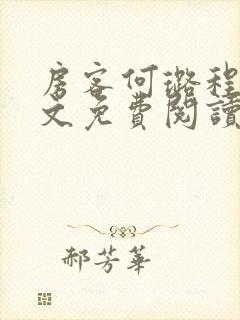 房客何璐程
文免費閱讀
郝芳華